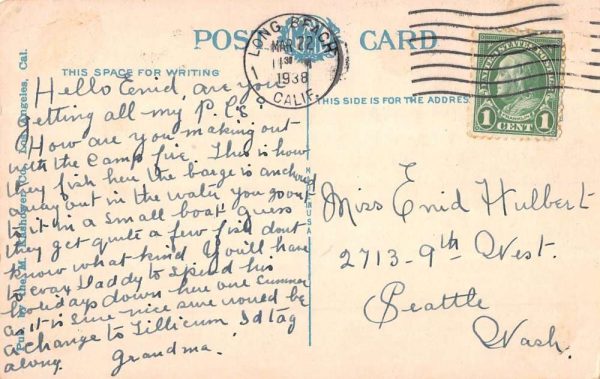 POST CARD
LONG BEACH
MAR 22
1938
CALIF.
UNITED STATES POSTAGE
FRANKLIN
1 CENT 1
THIS SPACE FOR WRITING
THIS SIDE IS FOR THE ADDRESS
Pub. by the M. Kashower Co., Los Angeles, Cal.
MADE IN USA
Hello Enid, are you
getting all my P.C's.
How are you making out
with the Camp fire. This is how
they fish here the barge is anchored
away out in the water you go out
to it in a small boat guess
they get quite a few fish dont
know what kind. You'll have
to Daddy to spend his
holidays down here one summer
as it is sure nice sure would be
a change to Tillicum Id tag
along. Grandma.
Miss Enid Hulbert
2713-9th West.
Seattle
Wash.